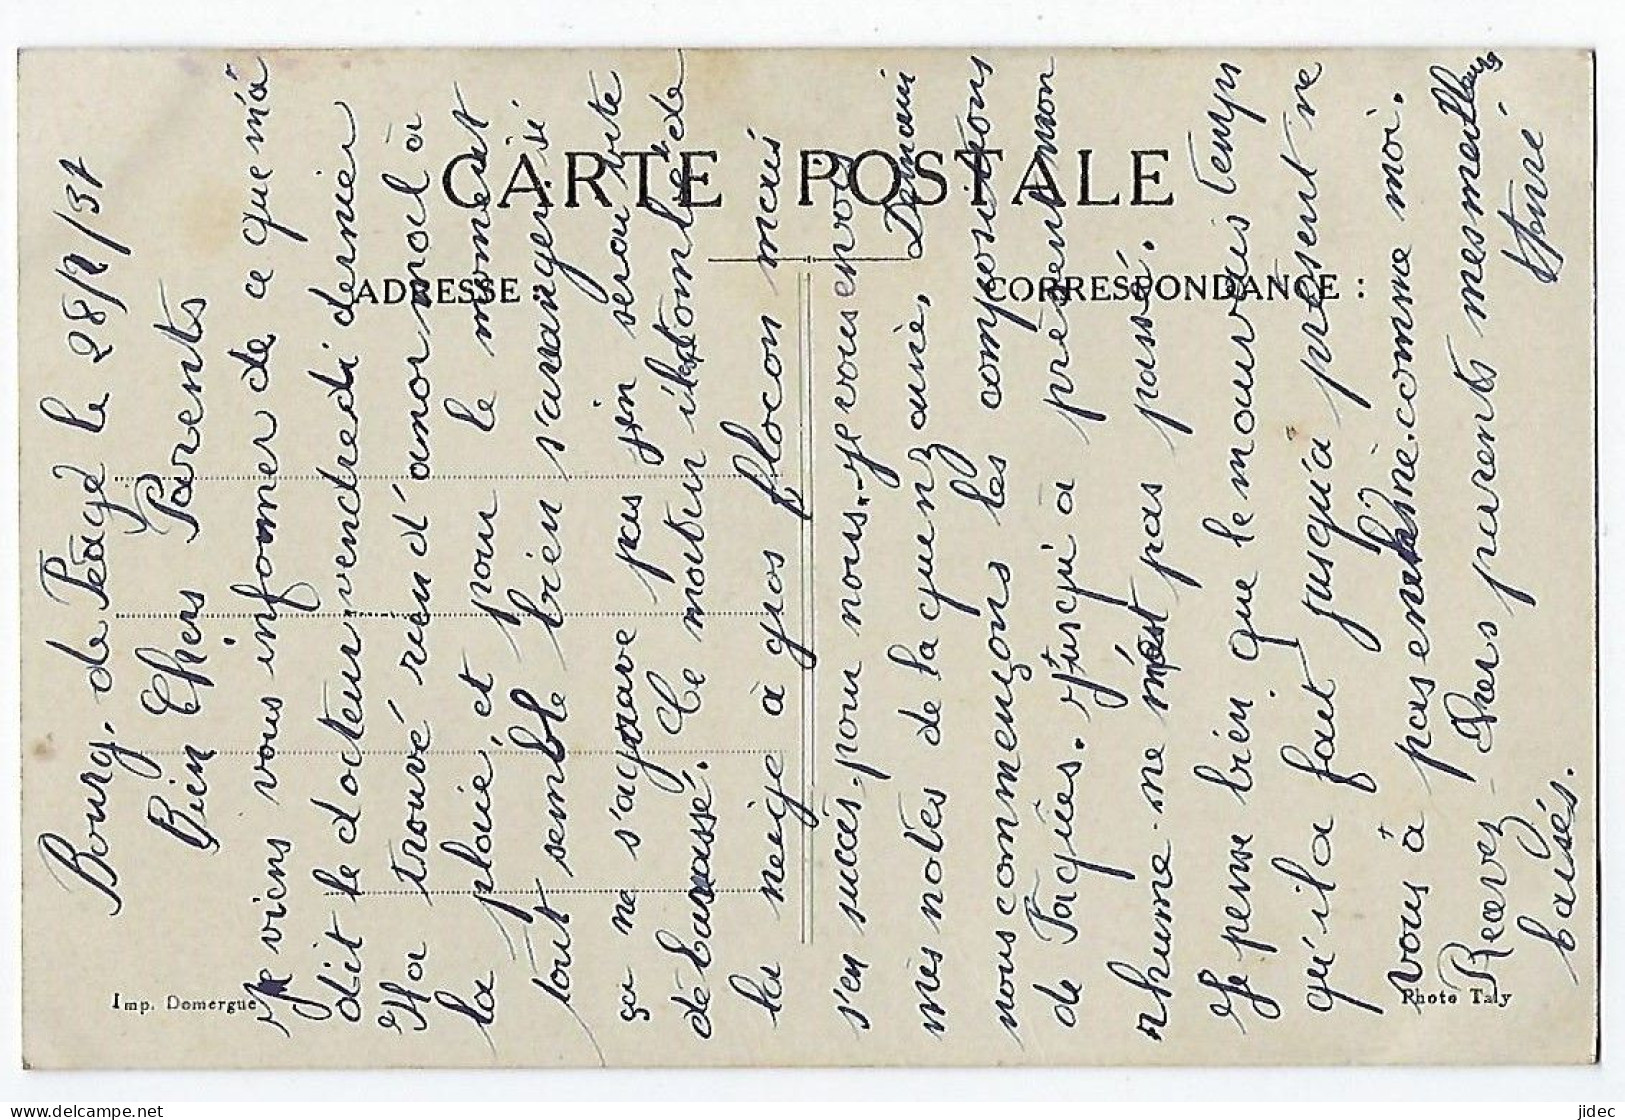 CARTE POSTALE
ADRESSE
CORRESPONDANCE :
Imp. Domergue
Photo Taly
Bourg, de Péage le 28/2/37
Bien Chers Parents
Je viens vous infomer de ce que m'a
dit le docteur vendredi dernier
Il a trouvé rien d'anormal à
la plaie, et pour le moment
tout semble bien s'aranger, si
ça ne s'agrave pas j'en serai vite
débarassé. Ce matin il tombé de
la neige à gros flocon mais
s'en succés, pour nous. Je vous envois
mes notes de la quinzaine, Demain
nous commençons les compositions
de Paques. Jusqu'à présent mon
rhume ne m'est pas passé.
Je pense bien que le mauvais temps
qu'il a fait jusqu'a présent ne
vous à pas comme moi.
Recevez chers parents mes meilleurs
baisés.